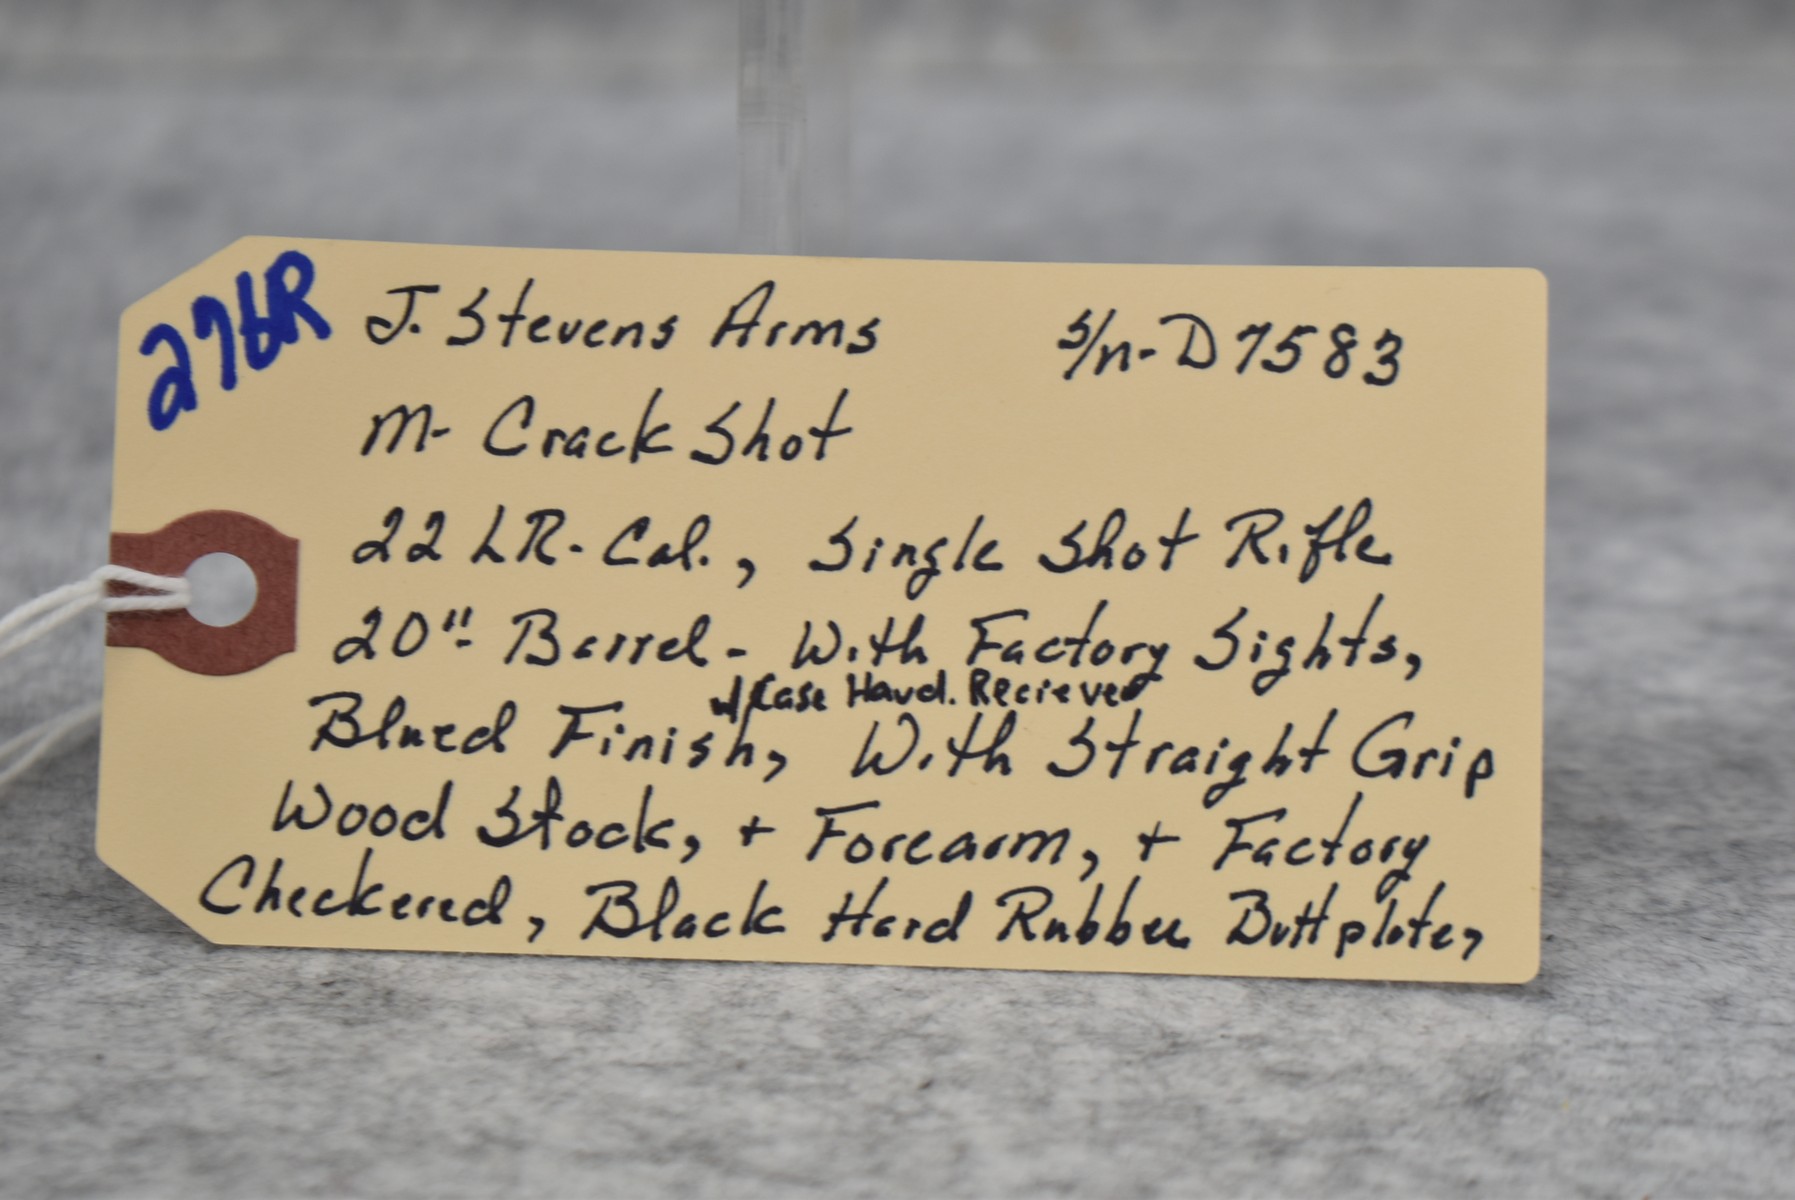 276R
J. Stevens Arms s/n-D7583
M- Crack Shot
22 LR-Cal., Single Shot Rifle
20"- Barrel - With Factory Sights,
w/Case Hard. Reciever
Blued Finish, With Straight Grip
Wood Stock, + Forearm, + Factory
Checkered, Black Hard Rubber Buttplate,